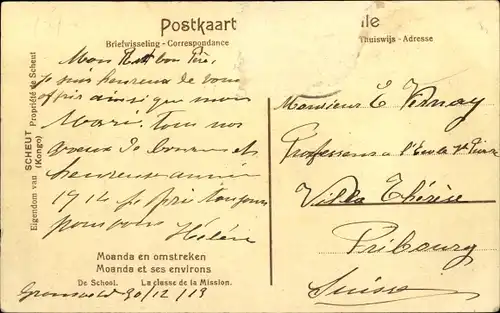 Postkaart
le
Briefwisseling - Correspondance
Thuiswijs - Adresse
Eigendom van SCHEUT Propriété de Scheut
(Kongo)
Mon bon Père,
Je suis heureuse de vous
offrir ainsi que mon
Mari tous nos
voeux de bonne et
heureuse année
1914 je prie toujours
pour vous Hélène
Monsieur E. Vernay
Professeur à l'Ecole
Villa Thérèse
Fribourg
Suisse
Moanda en omstreken
Moanda et ses environs
De School. La classe de la Mission.
30/12/13